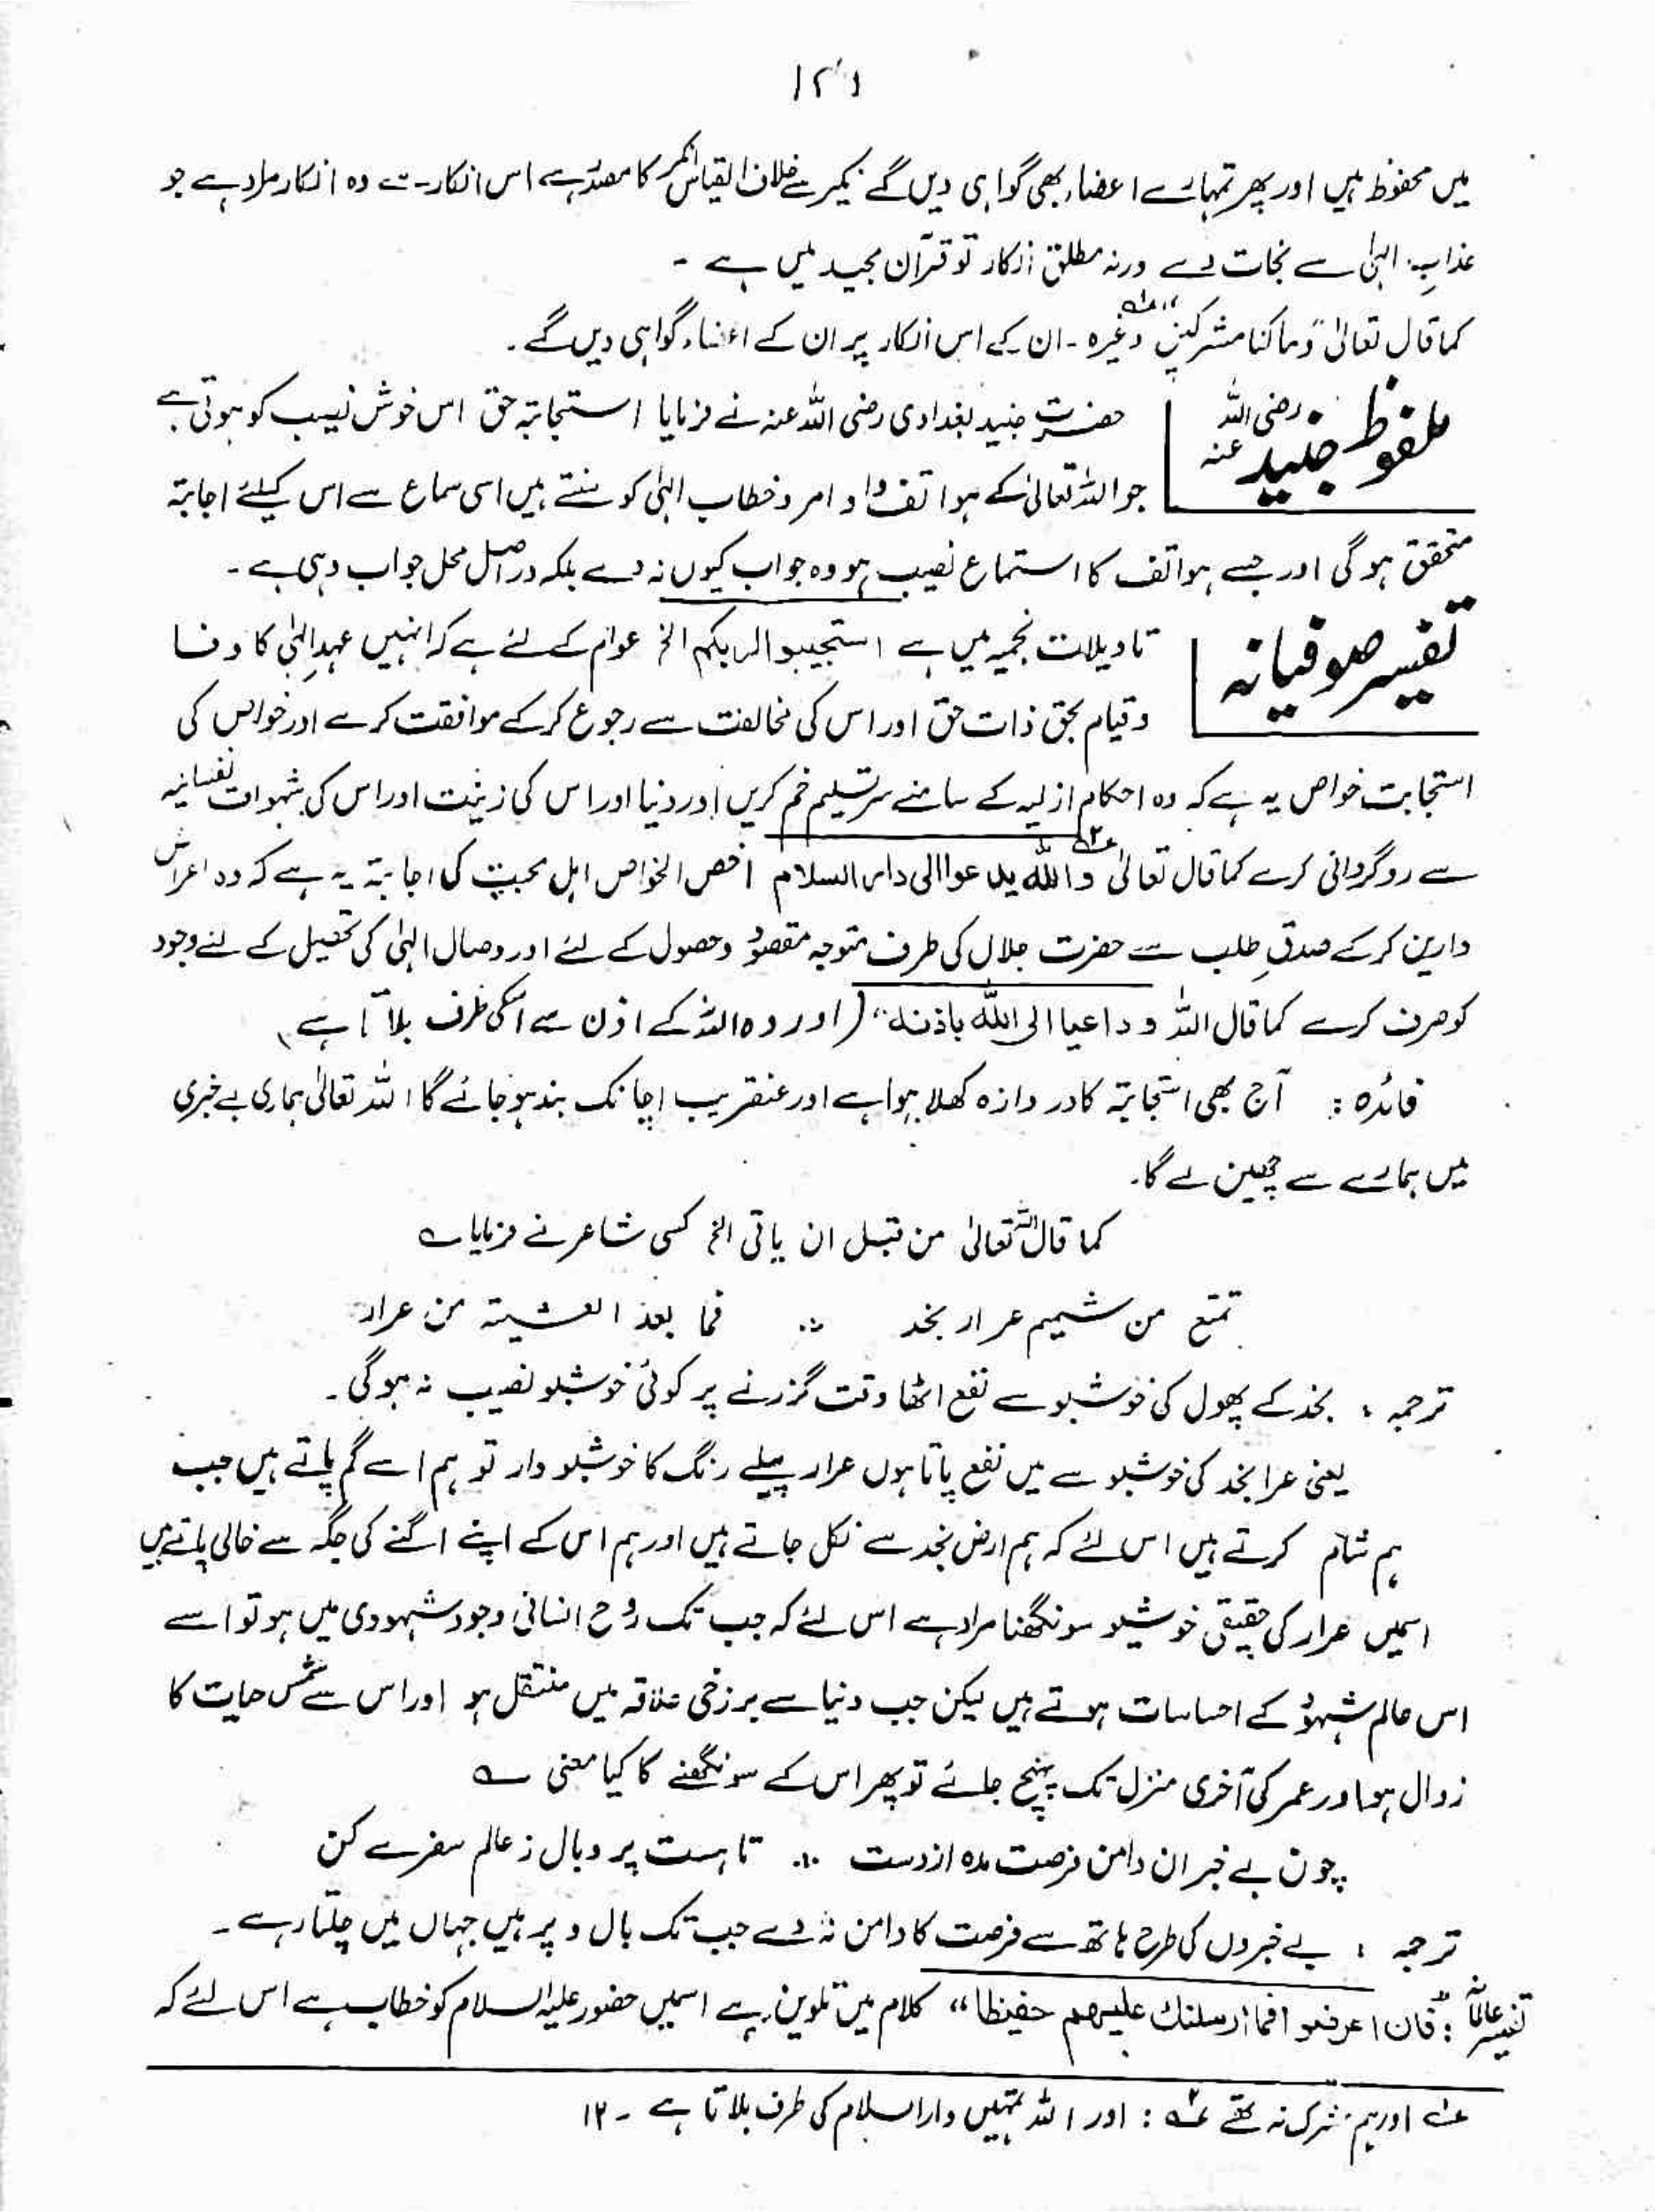 ۱۲۱
میں محفوظ ہیں اور پھر تمہارے اعضاء بھی گواہی دیں گے نکیر سے خلاف القیاس انکر کا مصدر ہے اس انکار سے وہ انکار مراد ہے جو
عذاب الہٰی سے نجات دے ورنہ مطلق انکار تو قرآن مجید میں ہے ۔
کما قال تعالیٰ وما کنا مشرکین وغیرہ ۔ ان کے اس انکار پر ان کے اعضاء گواہی دیں گے ۔
ملفوظ جنید رضی اللہ عنہ
حضرت جنید بغدادی رضی اللہ عنہ نے فرمایا استجابۃ حق اس خوش نصیب کو ہوتی ہے
جو اللہ تعالیٰ کے ہواتف و اوامر و خطاب الہٰی کو سنتے ہیں اسی سماع سے اس کیلئے اجابۃ
متحقق ہو گی اور جسے ہواتف کا استماع نصیب ہو وہ جواب کیوں نہ دے بلکہ دراصل محل جواب وہی ہے ۔
تفسیر صوفیانہ
تاویلات نجمیہ میں ہے استجیبوا لربکم الخ عوام کے لئے ہے کہ انہیں عہدِ الہٰی کا وفا
و قیام بحق ذات حق اور اس کی مخالفت سے رجوع کر کے موافقت کرے اور خواص کی
استجابت خواص یہ ہے کہ وہ احکام ازلیہ کے سامنے سر تسلیم خم کریں اور دنیا اور اس کی زینت اور اس کی شہوات نفسانیہ
سے روگردانی کرے کما قال تعالیٰ واللہ یدعوا الی دار السلام ع۲ اخص الخواص اہل محبت کی اجابۃ یہ ہے کہ وہ اعراض
دارین کر کے صدقِ طلب سے حضرت جلال کی طرف متوجہ مقصود و حصول کے لئے اور وصال الہٰی کی تحصیل کے لئے وجود
کو صرف کرے کما قال اللہ و داعیا الی اللہ باذنہ“ (اور وہ اللہ کے اذن سے اسکی طرف بلاتا ہے)
فائدہ : آج بھی استجابۃ کا دروازہ کھلا ہوا ہے اور عنقریب اچانک بند ہو جائے گا اللہ تعالیٰ ہماری بے خبری
میں ہمارے سے چھین لے گا۔
کما قال اللہ تعالیٰ من قبل ان یاتی الخ کسی شاعر نے فرمایا ؎
تمتع من شمیم عرار نجد ؞ فما بعد العشیۃ من عرار
ترجمہ : نجد کے پھول کی خوشبو سے نفع اٹھا وقت گزرنے پر کوئی خوشبو نصیب نہ ہو گی ۔
یعنی عرا نجد کی خوشبو سے میں نفع پاتا ہوں عرار پیلے رنگ کا خوشبو دار تو ہم اسے گم پاتے ہیں جب
ہم شام کرتے ہیں اس لئے کہ ہم ارض نجد سے نکل جاتے ہیں اور ہم اس کے اپنے اگنے کی جگہ سے خالی پاتے ہیں
اسمیں عرار کی حقیقی خوشبو سونگھنا مراد ہے اس لئے کہ جب تک روح انسانی وجود شہودی میں ہو تو اسے
اس عالم شہود کے احساسات ہوتے ہیں لیکن جب دنیا سے برزخی علاقہ میں منتقل ہو اور اس سے شمس حیات کا
زوال ہو اور عمر کی آخری منزل تک پہنچ جائے تو پھر اس کے سونگھنے کا کیا معنی ؎
چون بے خبران دامن فرصت مدہ از دست ؞ تا ہست پر و بال ز عالم سفرے کن
ترجمہ : بے خبروں کی طرح ہاتھ سے فرصت کا دامن نہ دے جب تک بال و پر ہیں جہاں میں چلتا رہے ۔
تفسیر عالمانہ : فان اعرضوا فما ارسلنٰک علیھم حفیظا“ کلام میں تلوین ہے اسمیں حضور علیہ السلام کو خطاب ہے اس لئے کہ
ع۱ اور ہم مشرک نہ تھے ع۲ : اور اللہ تمہیں دار السلام کی طرف بلاتا ہے ۔ ۱۲